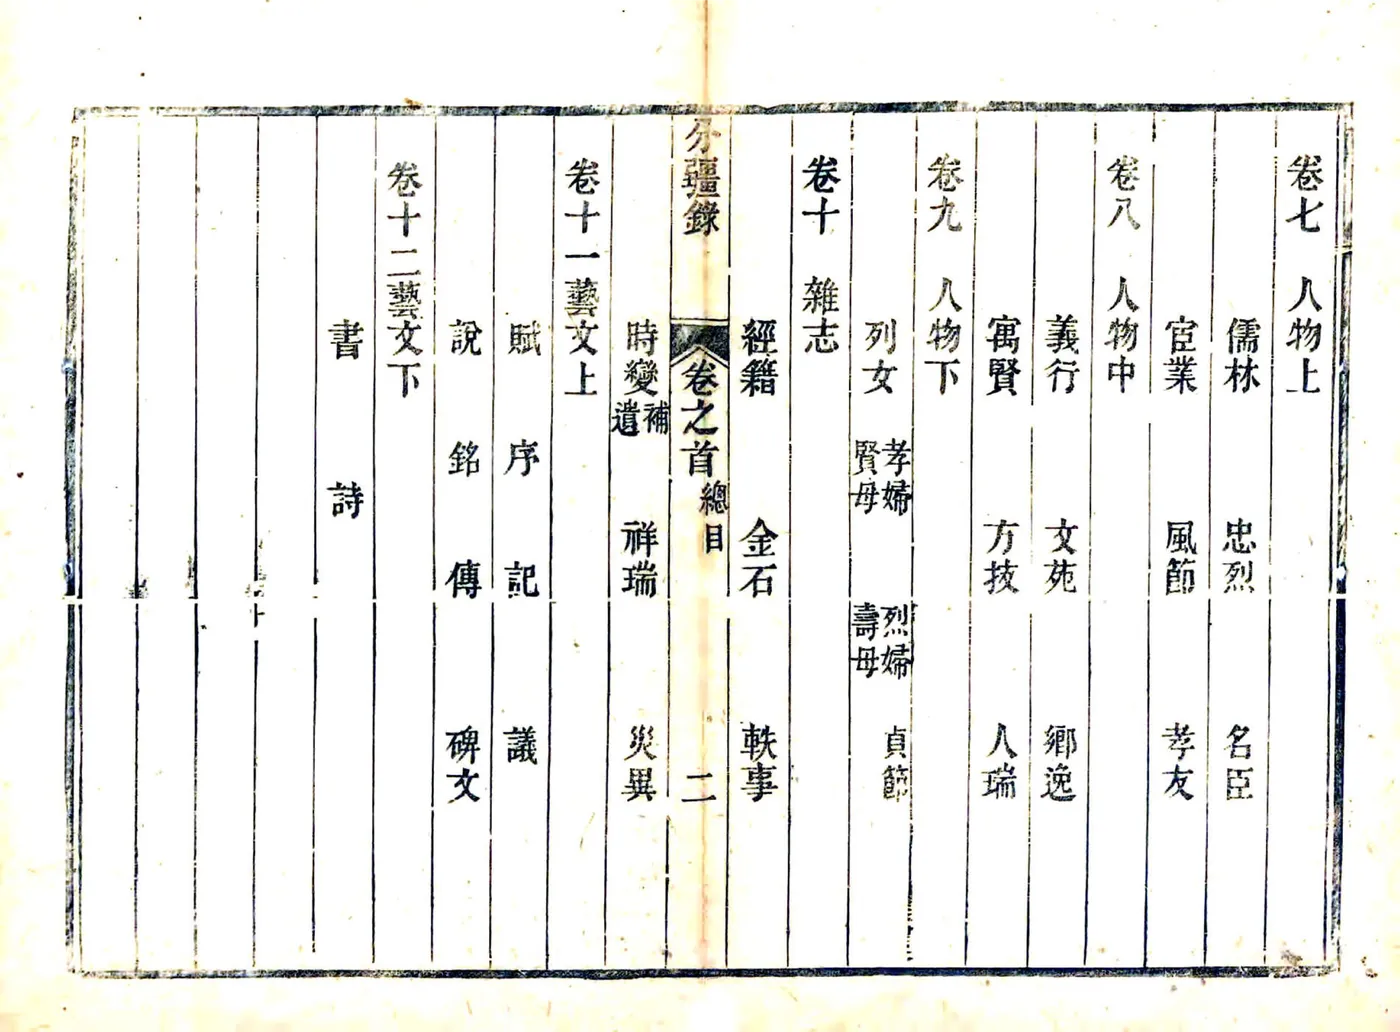 卷七　人物上
儒林　忠烈　名臣
宦業　風節　孝友
卷八　人物中
義行　文苑　鄉逸
寓賢　方技　人瑞
卷九　人物下
列女　孝婦賢母　烈婦壽母　貞節
卷十　雜志
經籍　金石　軼事
分疆錄　卷之首　總目　二
時變補遺　祥瑞　災異
卷十一藝文上
賦　序　記　議
說　銘　傳　碑文
卷十二藝文下
書　詩